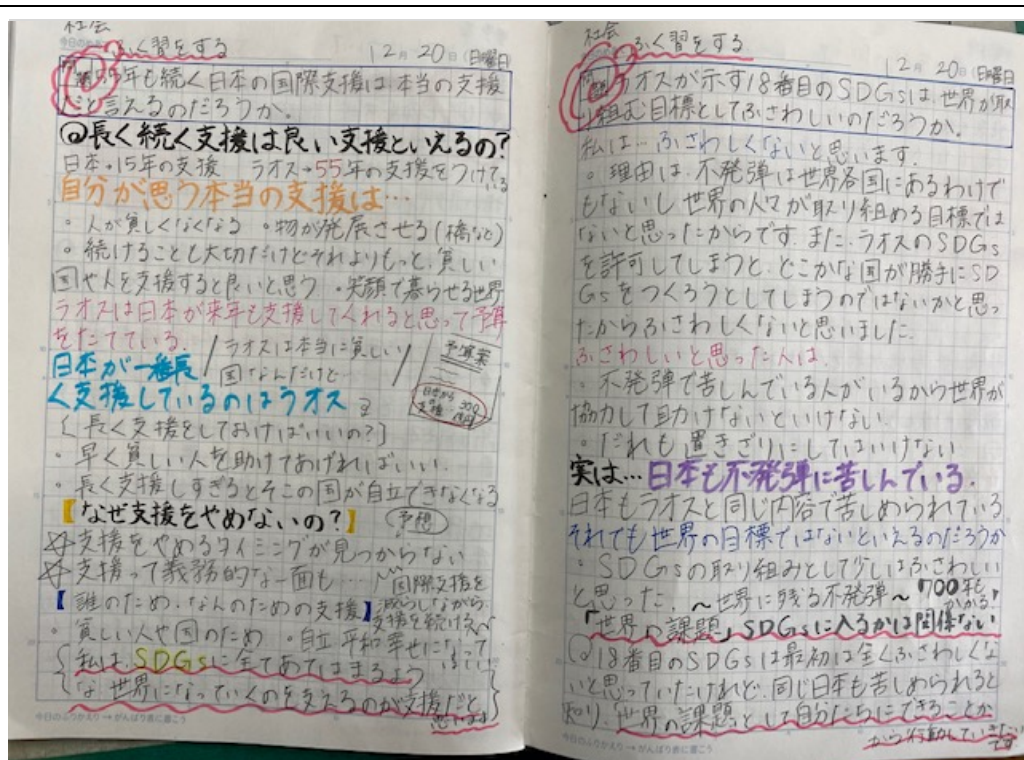 社会
今日のめあて ふく習をする
12月20日(日曜日
問題 55年も続く日本の国際支援は本当の支援
だと言えるのだろうか。
@長く続く支援は良い支援といえるの?
日本→15年の支援 ラオス→55年の支援をつけている
自分が思う本当の支援は…
・人が貧しくなくなる ・物が発展させる(橋など)
・続けることも大切だけどそれよりもっと、貧しい
国や人を支援すると良いと思う ・笑顔で暮らせる世界
ラオスは日本が来年も支援してくれると思って予算
をたてている。
ラオスは本当に貧しい
国なんだけど…
予算案
日本から
支援
日本が一番長
く支援しているのはラオス
〔長く支援をしておけばいいの?〕
・早く貧しい人を助けてあげればいい。
・長く支援しすぎるとそこの国が自立できなくなる
【なぜ支援をやめないの?】 予想
☆支援をやめるタイミングが見つからない
☆支援って義務的な一面も…
国際支援を
減らしながら、
支援を続ける
【誰のため、なんのための支援】
・貧しい人や国のため ・自立 平和 幸せになって
私は、SDGsに全てあてはまるよう
な世界になっていくのを支えるのが支援だと
思います
今日のふりかえり→がんばり表に書こう
社会
ふく習をする
12月20日(日曜日
問題 ラオスが示す18番目のSDGsは、世界が取
り組む目標としてふさわしいのだろうか。
私は…ふさわしくないと思います。
・理由は、不発弾は世界各国にあるわけで
もないし世界の人々が取り組める目標では
ないと思ったからです。また、ラオスのSDGs
を許可してしまうと、どこかな国が勝手にSD
Gsをつくろうとしてしまうのではないかと思っ
たからふさわしくないと思いました。
ふさわしいと思った人は、
・不発弾で苦しんでいる人がいるから世界が
協力して助けないといけない。
・だれも置きざりにしてはいけない
実は…日本も不発弾に苦しんでいる。
日本もラオスと同じ内容で苦しめられている
それでも世界の目標ではないといえるのだろうか
・SDGsの取り組みとして少しはふさわしい
と思った。~世界に残る不発弾~ 700年も
かかる!
「世界の課題」SDGsに入るかは関係ない
@18番目のSDGsは最初は全くふさわしくな
いと思っていたけれど、同じ日本も苦しめられると
知り、世界の課題として自分たちにできることか
から行動していきたい
です
今日のふりかえり→がんばり表に書こう